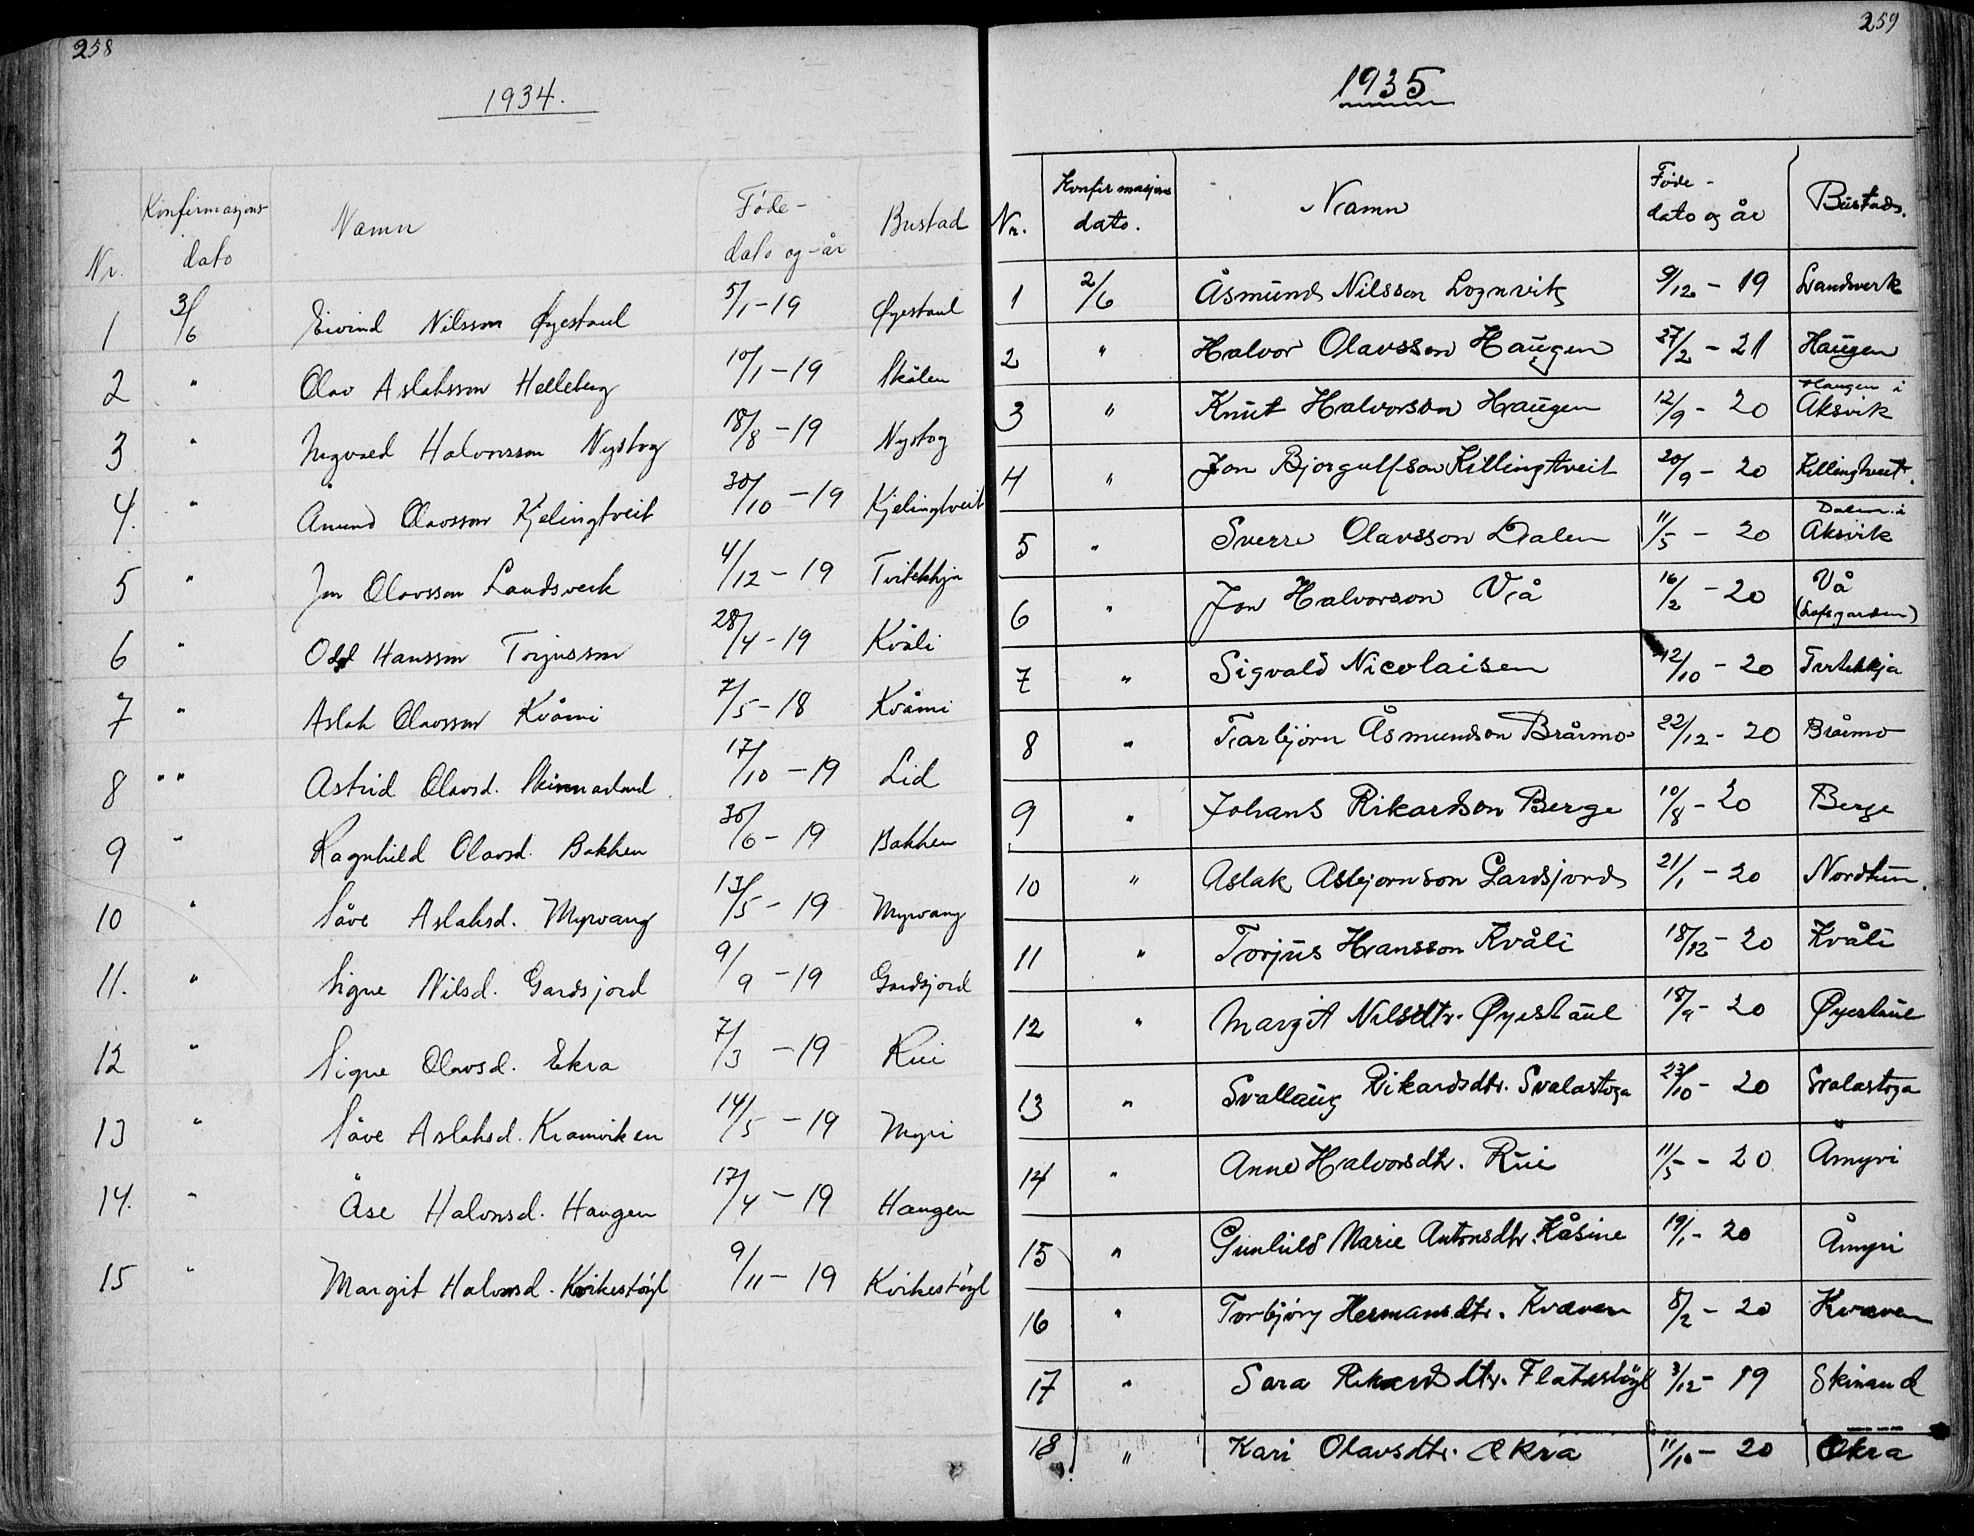 258
1934.
Nr. Konfirmasjons- dato Namn Føde- dato og -år Bustad
1 3/6 Eivind Nilsson Øyestaul 5/1-19 Øyestaul
2 " Olav Aslaksson Helleberg 10/1-19 Skålen
3 " Ingvald Halvorsson Nystog 18/8-19 Nystog
4. " Åmund Olavsson Kjelingtveit 30/10-19 Kjelingtveit
5 " Jon Olavsson Landsverk 4/12-19 Tvitekkja
6 " Odd Hansson Torjusson 28/4-19 Kvåli
7 " Aslak Olavsson Kvåmi 7/5-18 Kvåmi
8 " " Astrid Olavsd. Skinnarland 17/10-19 Lid
9 " Ragnhild Olavsd. Bakken 30/6-19 Bakken
10 " Såve Aslaksd. Myrvang 13/5-19 Myrvang
11. " Signe Nilsd. Gardsjord 9/9-19 Gardsjord
12 " Signe Olavsd. Ekra 7/3-19 Rui
13 " Såve Aslaksd. Kramviken 14/5-19 Myri
14. " Åse Halvorsd. Haugen 17/4-19 Haugen
15 " Margit Halvorsd. Kvikestøyl 9/11-19 Kvikestøyl
259
1935
Nr. Konfirmasjons dato. Namn Føde- dato og år Bustad.
1 2/6 Åsmund Nilsson Lognvik 9/12-19 Landsverk
2 " Halvor Olavsson Haugen 27/2-21 Haugen
3 " Knut Halvorson Haugen 12/9-20 Haugen i Åksvik
4 " Jon Bjorgulfson Killingtveit 20/9-20 Killingtveit.
5 " Sverre Olavsson Dalen 11/5-20 Dalen i Åksvik
6 " Jon Halvorson Vå 16/2-20 Vå (Lofsgarden)
7 " Sigvald Nicolaisen 12/10-20 Tvitekkja
8 " Tarbjørn Åsmundson Bråmo 22/12-20 Bråmo
9 " Johans Rikardson Berge 10/8-20 Berge
10 " Aslak Asbjørnson Gardsjord 21/1-20 Nordtun.
11 " Torjus Hansson Kvåli 18/12-20 Kvåli
12 " Margit Nilsdtr. Øyestaul 18/9-20 Øyestaul
13 " Svallaug Rikardsdtr. Svalastoga 23/10-20 Svalastoga
14 " Anne Halvorsdtr. Rui 11/5-20 Åmyri
15 " Gunhild Marie Antonsdtr. Håsine 19/1-20 Åmyri
16 " Torbjörg Hermansdtr. Kvæven 8/2-20 Kvæven
17 " Sara Rikardsdtr. Flatestöyl 3/12-19 Skinand
18 " Kari Olavsdtr. Ækra 11/10-20 Ækra